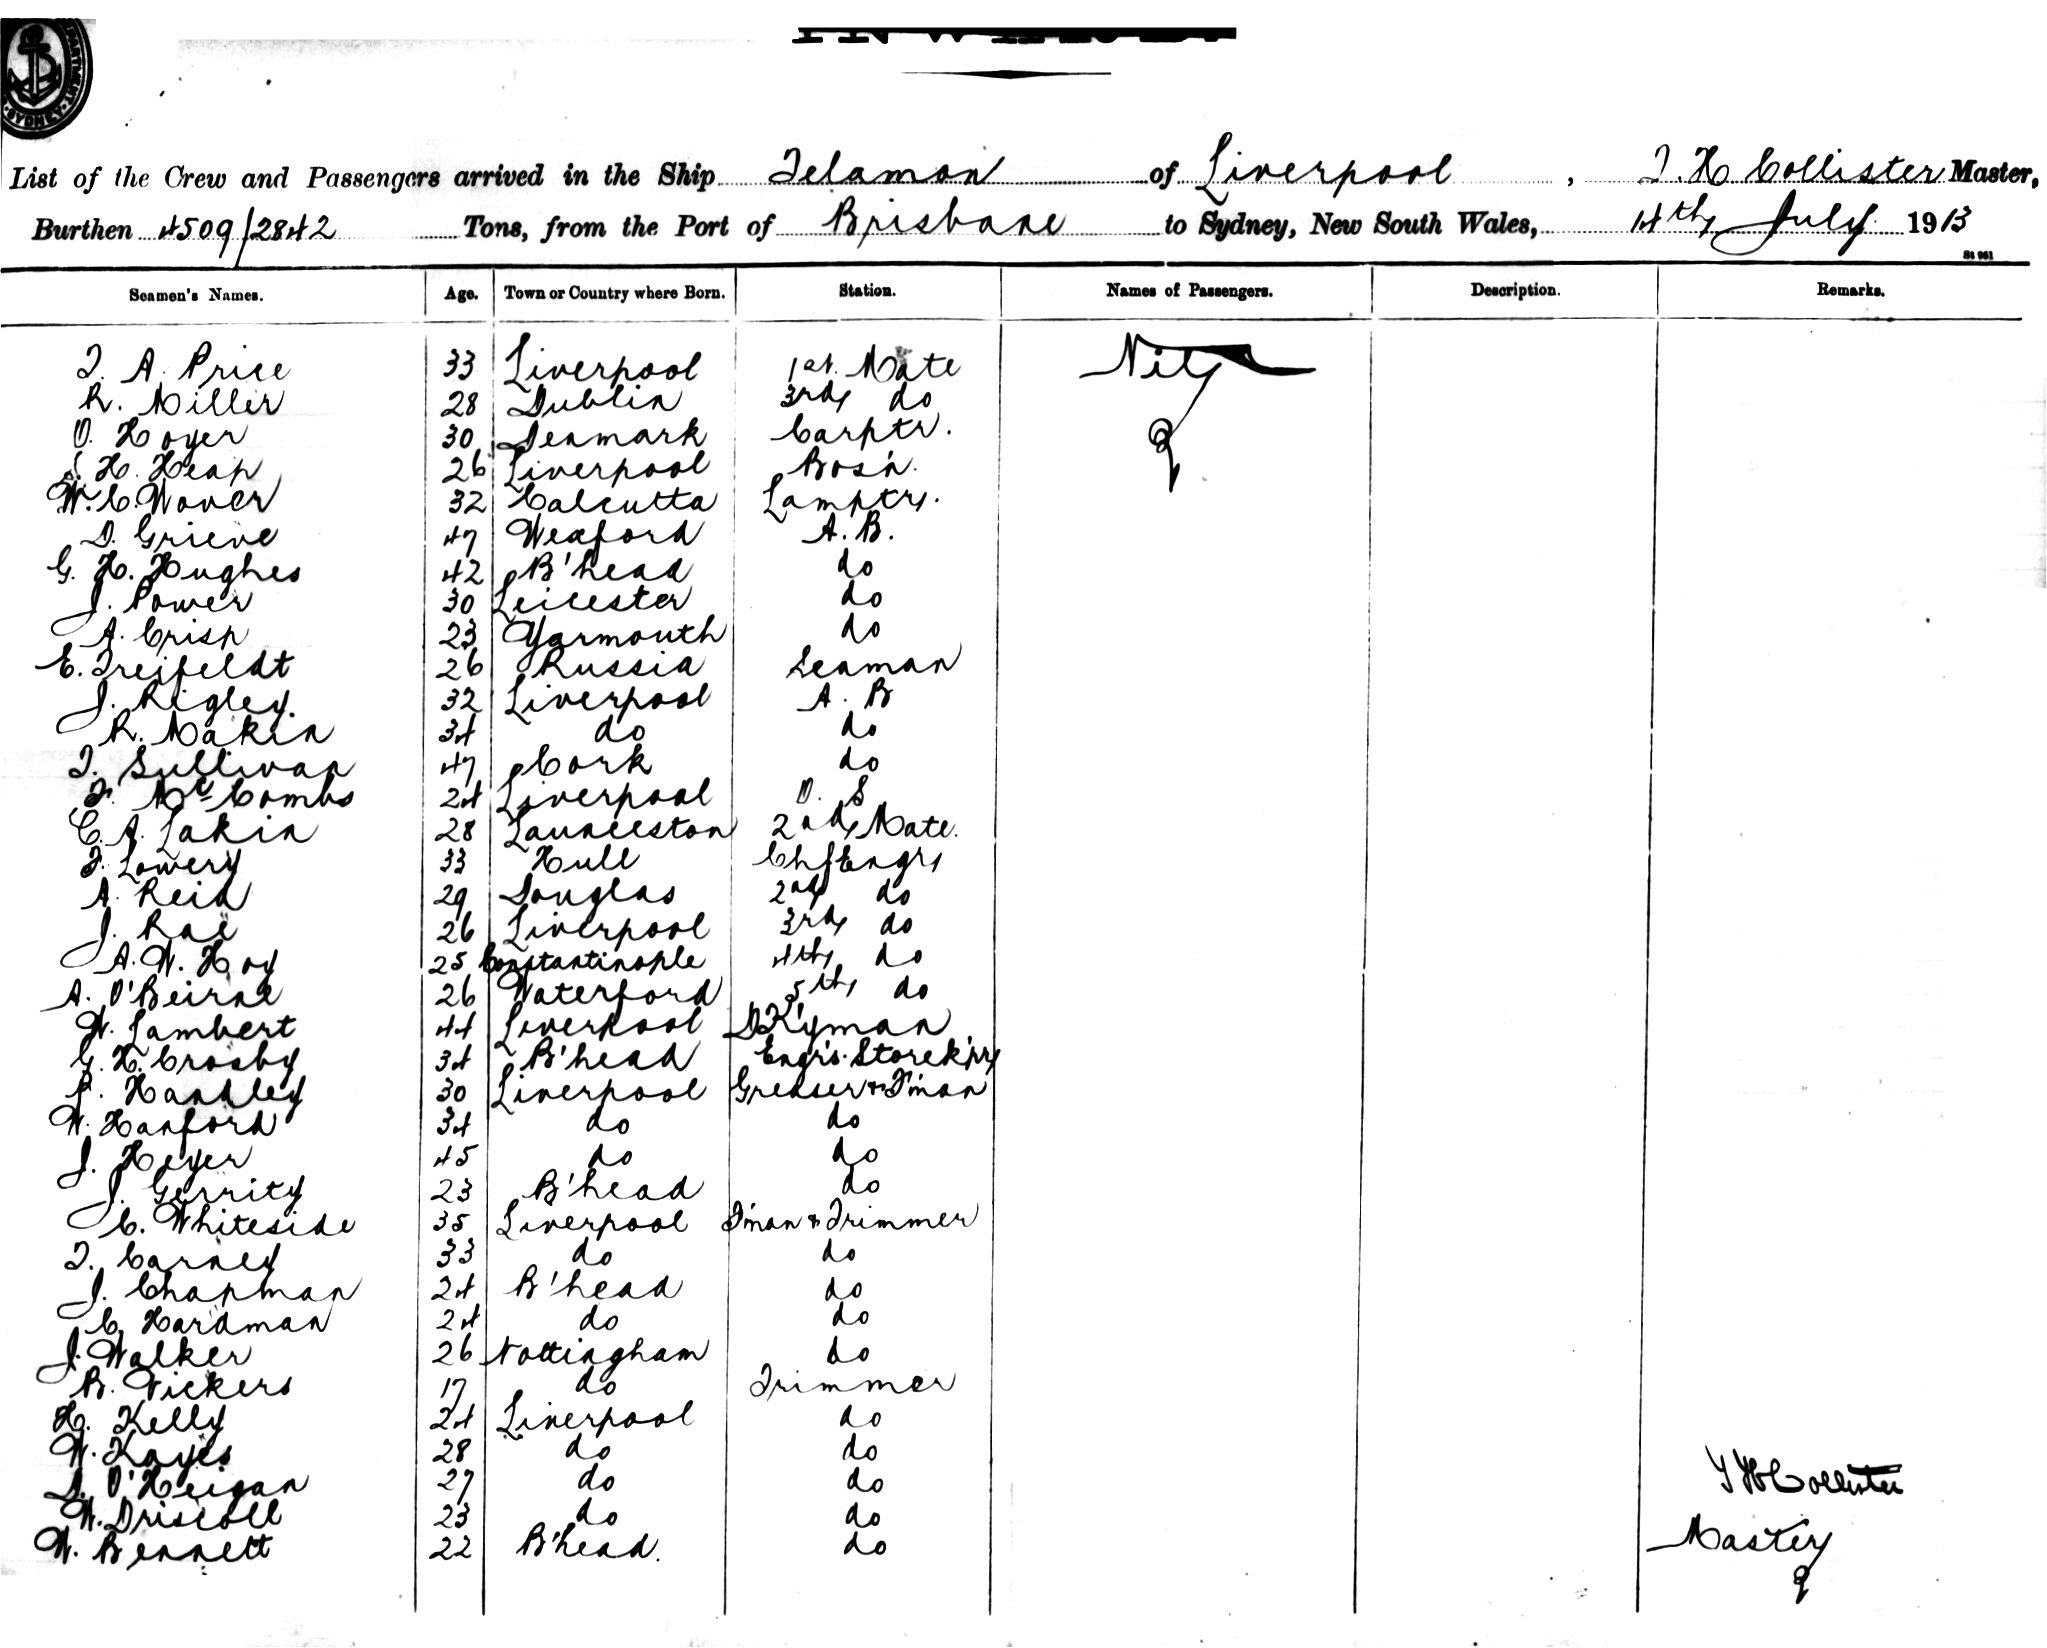 DEPARTMENT SYDNEY
List of the Crew and Passengers arrived in the Ship Telamon of Liverpool, T. H Collister Master,
Burthen 4509/2842 Tons, from the Port of Brisbane to Sydney, New South Wales, 14th July 1913
St 961
Seamen's Names. Age. Town or Country where Born. Station. Names of Passengers. Description. Remarks.
T. A. Price 33 Liverpool 1st. Mate Nil
R. Miller 28 Dublin 3rd do
O. Hoyer 30 Denmark Carptr.
H. Heap 26 Liverpool Bos'n.
W. C. Wover 32 Calcutta Lamptr.
D. Grieve 47 Wexford A. B.
G. H. Hughes 42 B'head do
J. Power 30 Leicester do
A. Crisp 23 Yarmouth do
E. Treifeldt 26 Russia Seaman
J. Rigley. 32 Liverpool A. B
R. Makin 34 do do
T. Sullivan 47 Cork do
F. Mc Combs 24 Liverpool O. S
C. A. Lakin 28 Launceston 2nd Mate.
Lowery 33 Hull Chf Engr
A. Reid 29 Douglas 2nd do
J. Rae 26 Liverpool 3rd do
A. W. Hoy 25 Constantinople 4th do
A. O'Beirne 26 Waterford 5th do
W. Lambert 44 Liverpool DK'yman
G. H. Crosby 34 B'head Engr's. Storek'pr
Handley 30 Liverpool Greaser & F'man
W. Hanford 34 do do
J. Heyer 45 do do
J. Gerrity 23 B'head do
C. Whiteside 35 Liverpool F'man & Trimmer
T. Carney 33 do do
J. Chapman 24 B'head do
C. Hardman 24 do do
J. Walker 26 Nottingham do
B. Vickers 17 do Trimmer
H. Kelly 24 Liverpool do
W. Kayes 28 do do
D. O'Heigan 27 do do
T H Collister
W. Driscoll 23 do do
W. Bennett 22 B'head. do
Master